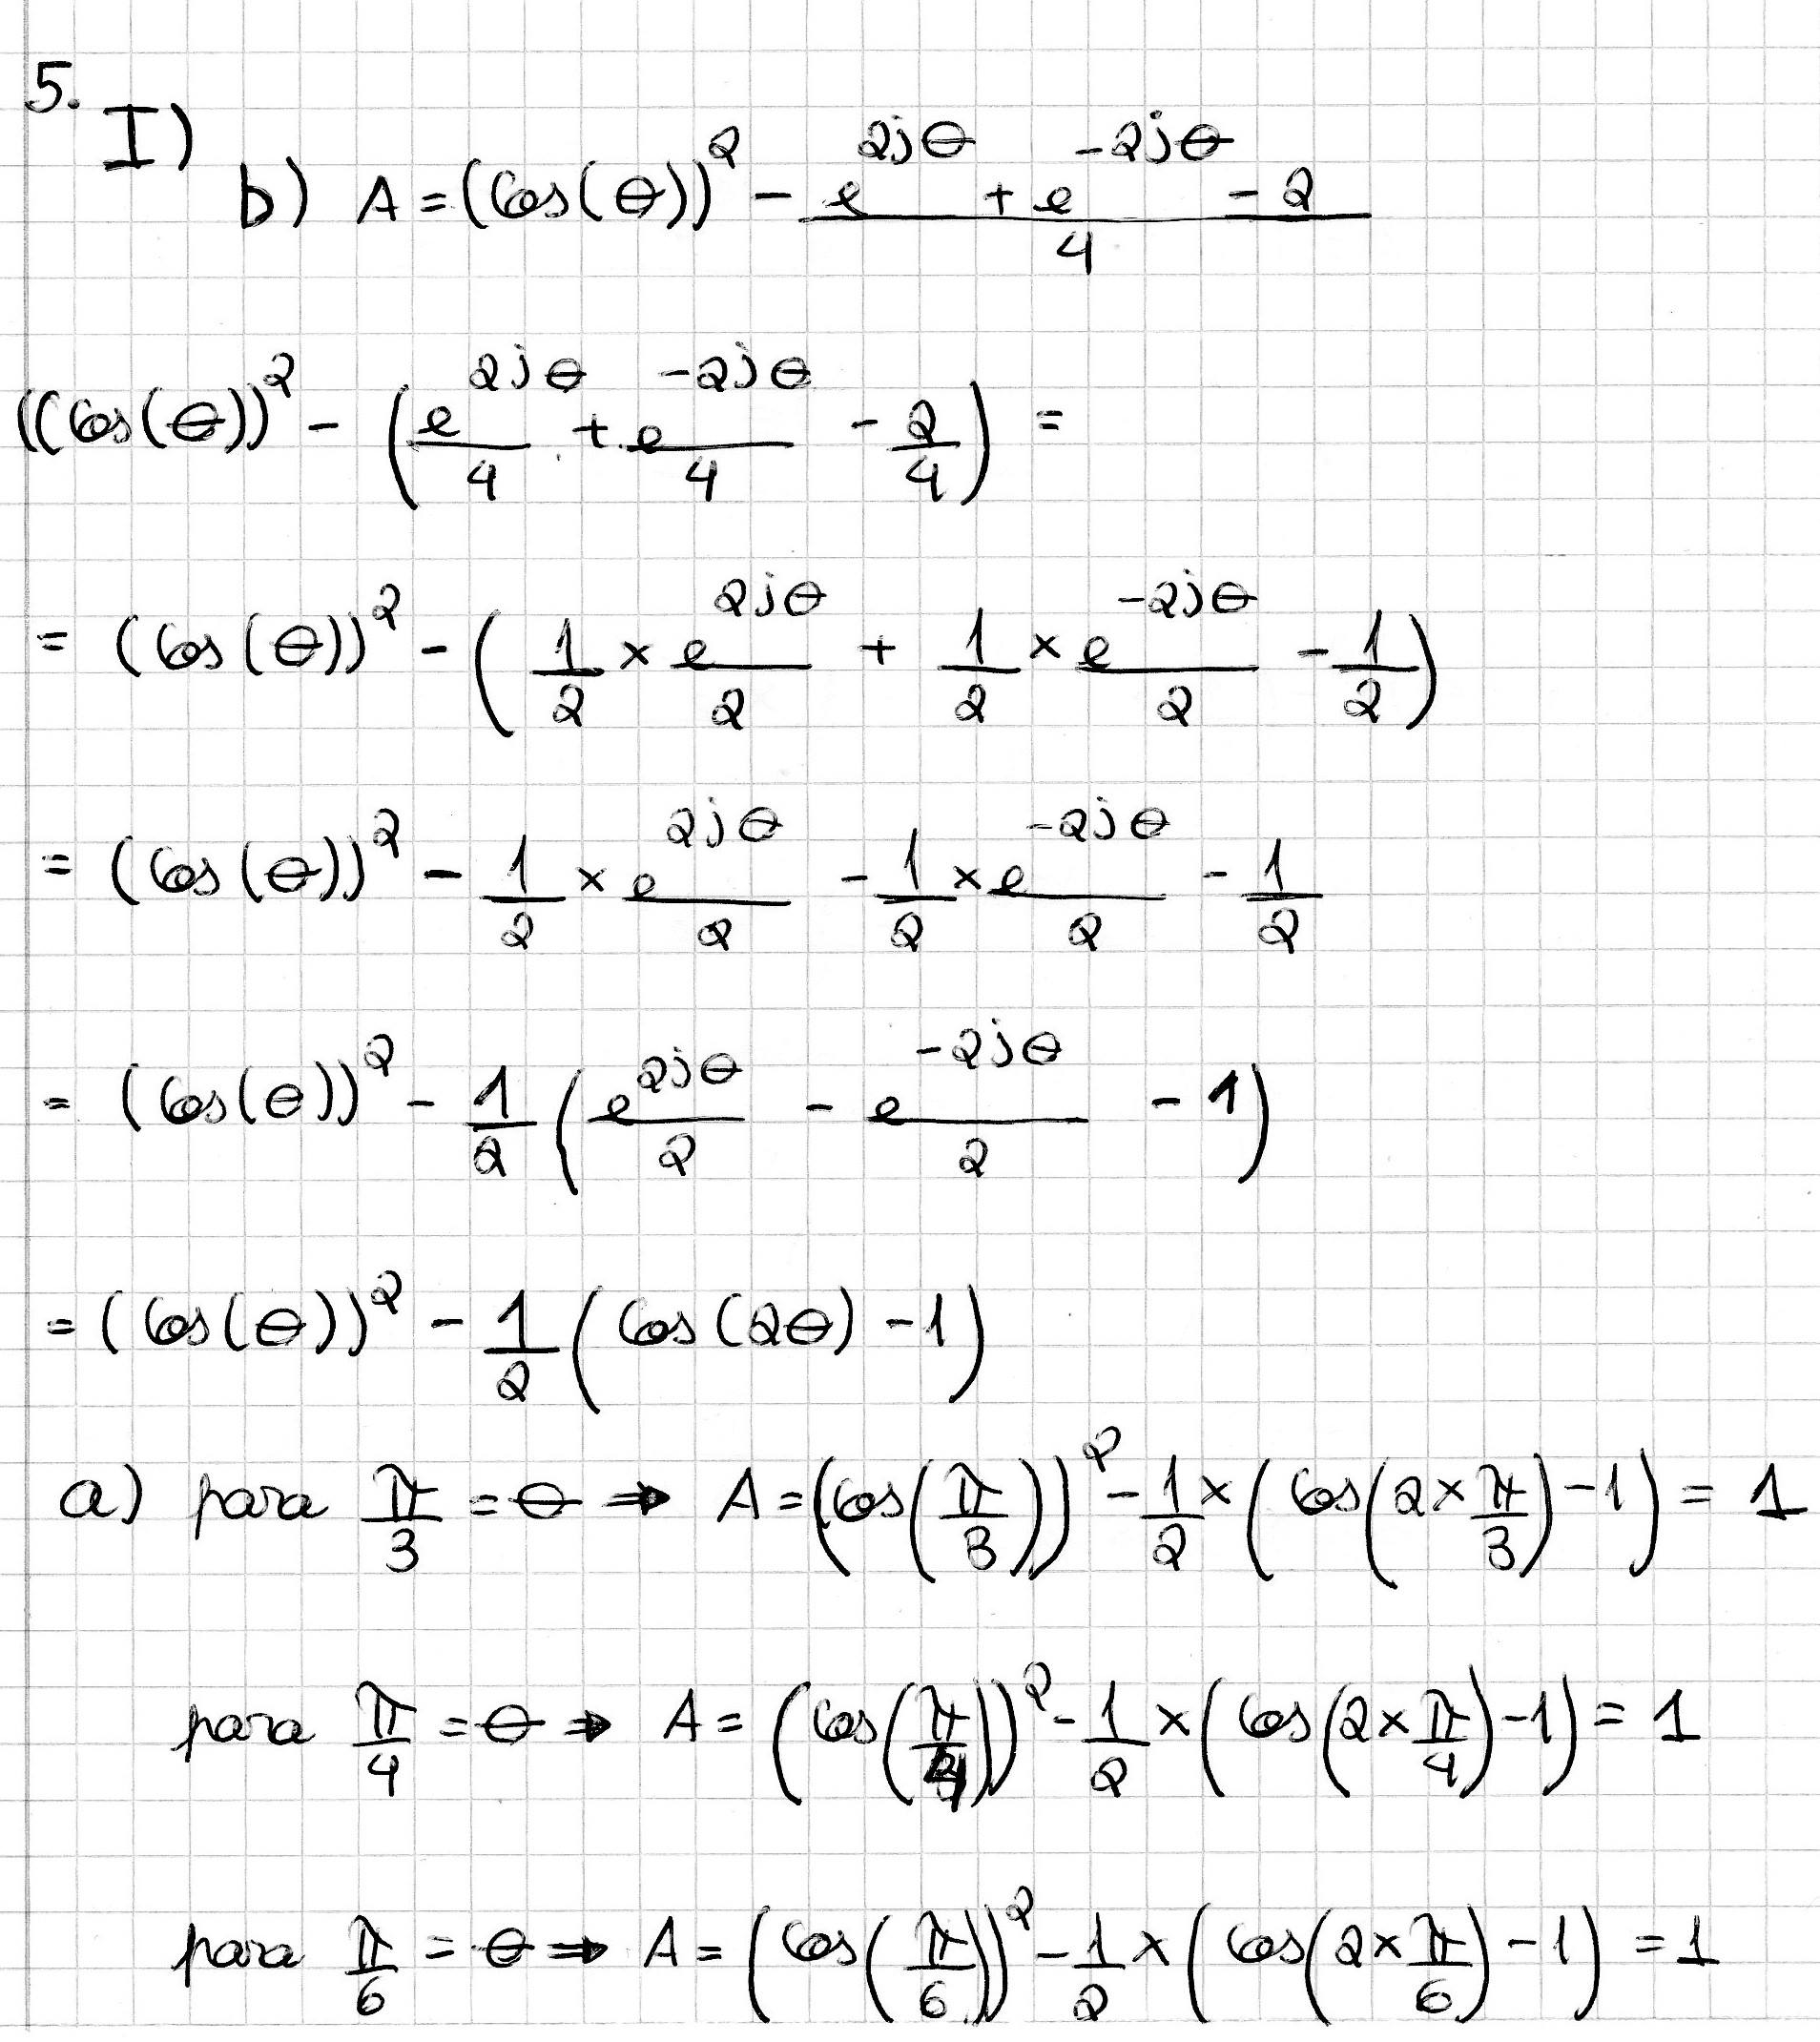 5.
I)
b) A = (cos(θ))² - (e^(2jθ) + e^(-2jθ) - 2)/4
((cos(θ))² - (e^(2jθ)/4 + e^(-2jθ)/4 - 2/4) =
= (cos(θ))² - (1/2 × e^(2jθ)/2 + 1/2 × e^(-2jθ)/2 - 1/2)
= (cos(θ))² - 1/2 × e^(2jθ)/2 - 1/2 × e^(-2jθ)/2 - 1/2
= (cos(θ))² - 1/2 (e^(2jθ)/2 - e^(-2jθ)/2 - 1)
= (cos(θ))² - 1/2 (cos(2θ) - 1)
a) para π/3 = θ ⇒ A = (cos(π/3))² - 1/2 × (cos(2 × π/3) - 1) = 1
para π/4 = θ ⇒ A = (cos(π/4))² - 1/2 × (cos(2 × π/4) - 1) = 1
para π/6 = θ ⇒ A = (cos(π/6))² - 1/2 × (cos(2 × π/6) - 1) = 1